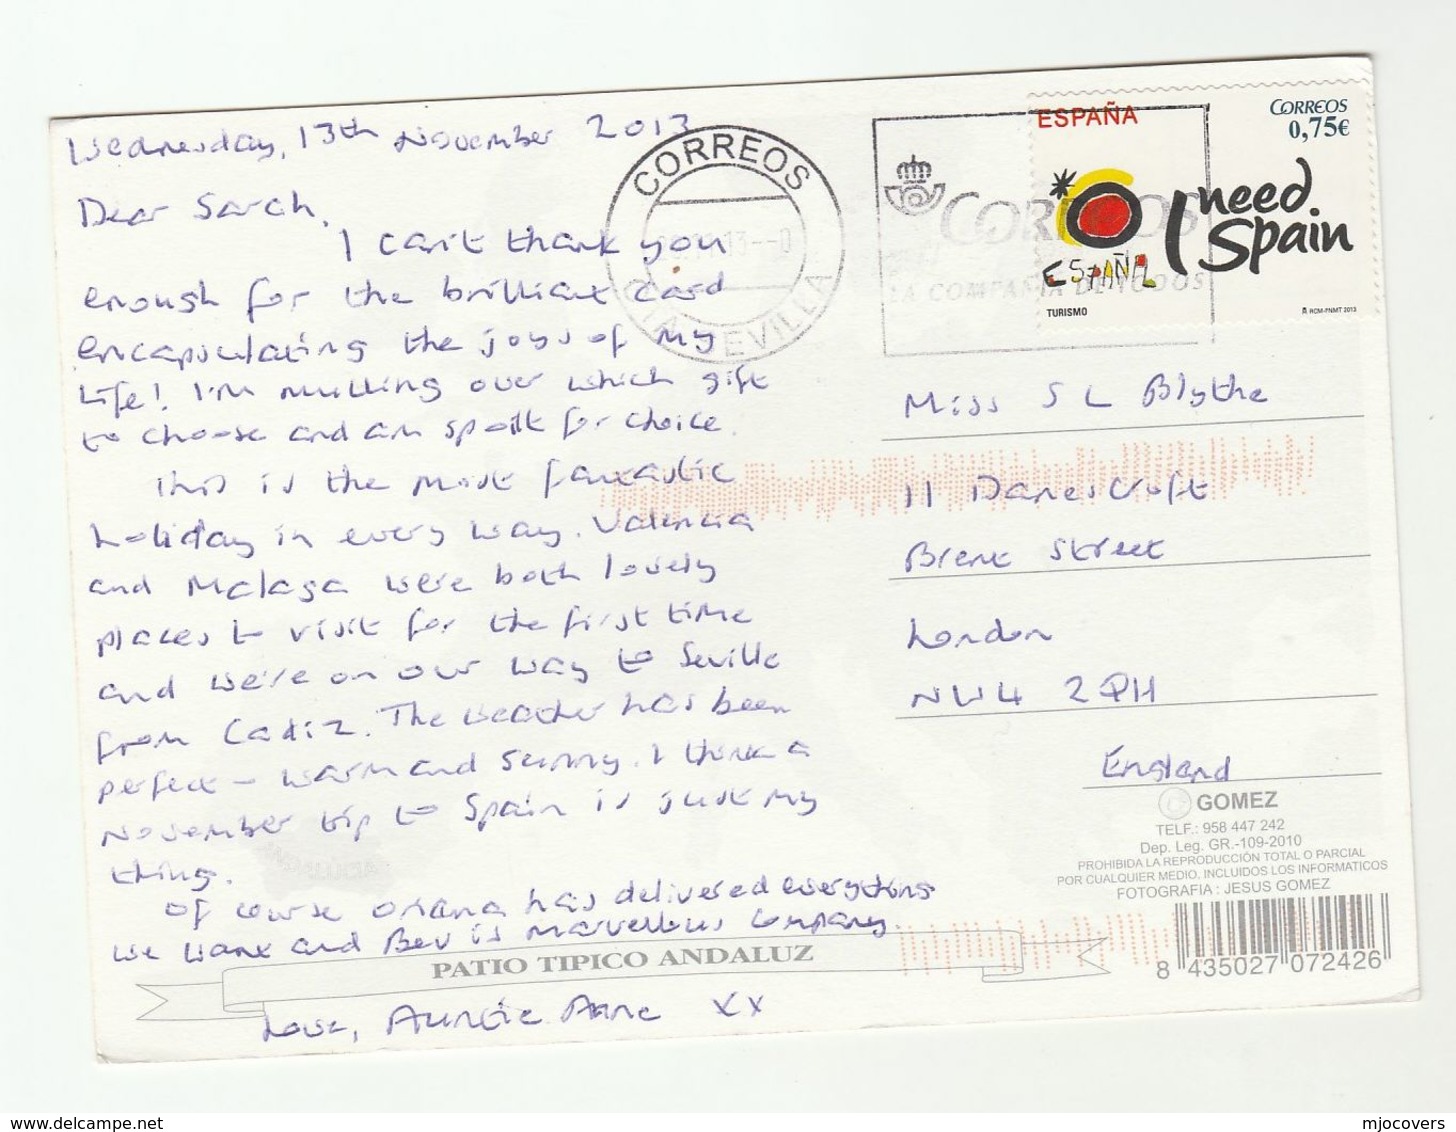 Wednesday, 13th November 2013
Dear Sarah,
I can't thank you
enough for the brilliant card
encapsulating the joys of my
life! I'm mulling over which gift
to choose and am spoilt for choice.
This is the most fantastic
holiday in every way. Valencia
and Malaga were both lovely
places to visit for the first time
and we're on our way to Seville
from Cadiz. The weather has been
perfect – warm and sunny. I think a
November trip to Spain is just my
thing.
Of course Oriana has delivered everything
we want and Bev is marvellous company.
Love, Auntie Anne xx
PATIO TIPICO ANDALUZ
ANDALUCIA
CORREOS
11 13--0
CTA SEVILLA
CORREOS
LA COMPAÑIA DE TODOS
ESPAÑA
CORREOS
0,75€
I need
Spain
ESPAÑA
TURISMO
RCM-FNMT 2013
Miss S L Blythe
11 Danescroft
Brent Street
London
NW4 2QH
England
G GOMEZ
TELF.: 958 447 242
Dep. Leg. GR.-109-2010
PROHIBIDA LA REPRODUCCIÓN TOTAL O PARCIAL
POR CUALQUIER MEDIO, INCLUIDOS LOS INFORMATICOS
FOTOGRAFIA : JESUS GOMEZ
8 435027 072426
delcampe.net
mjocovers